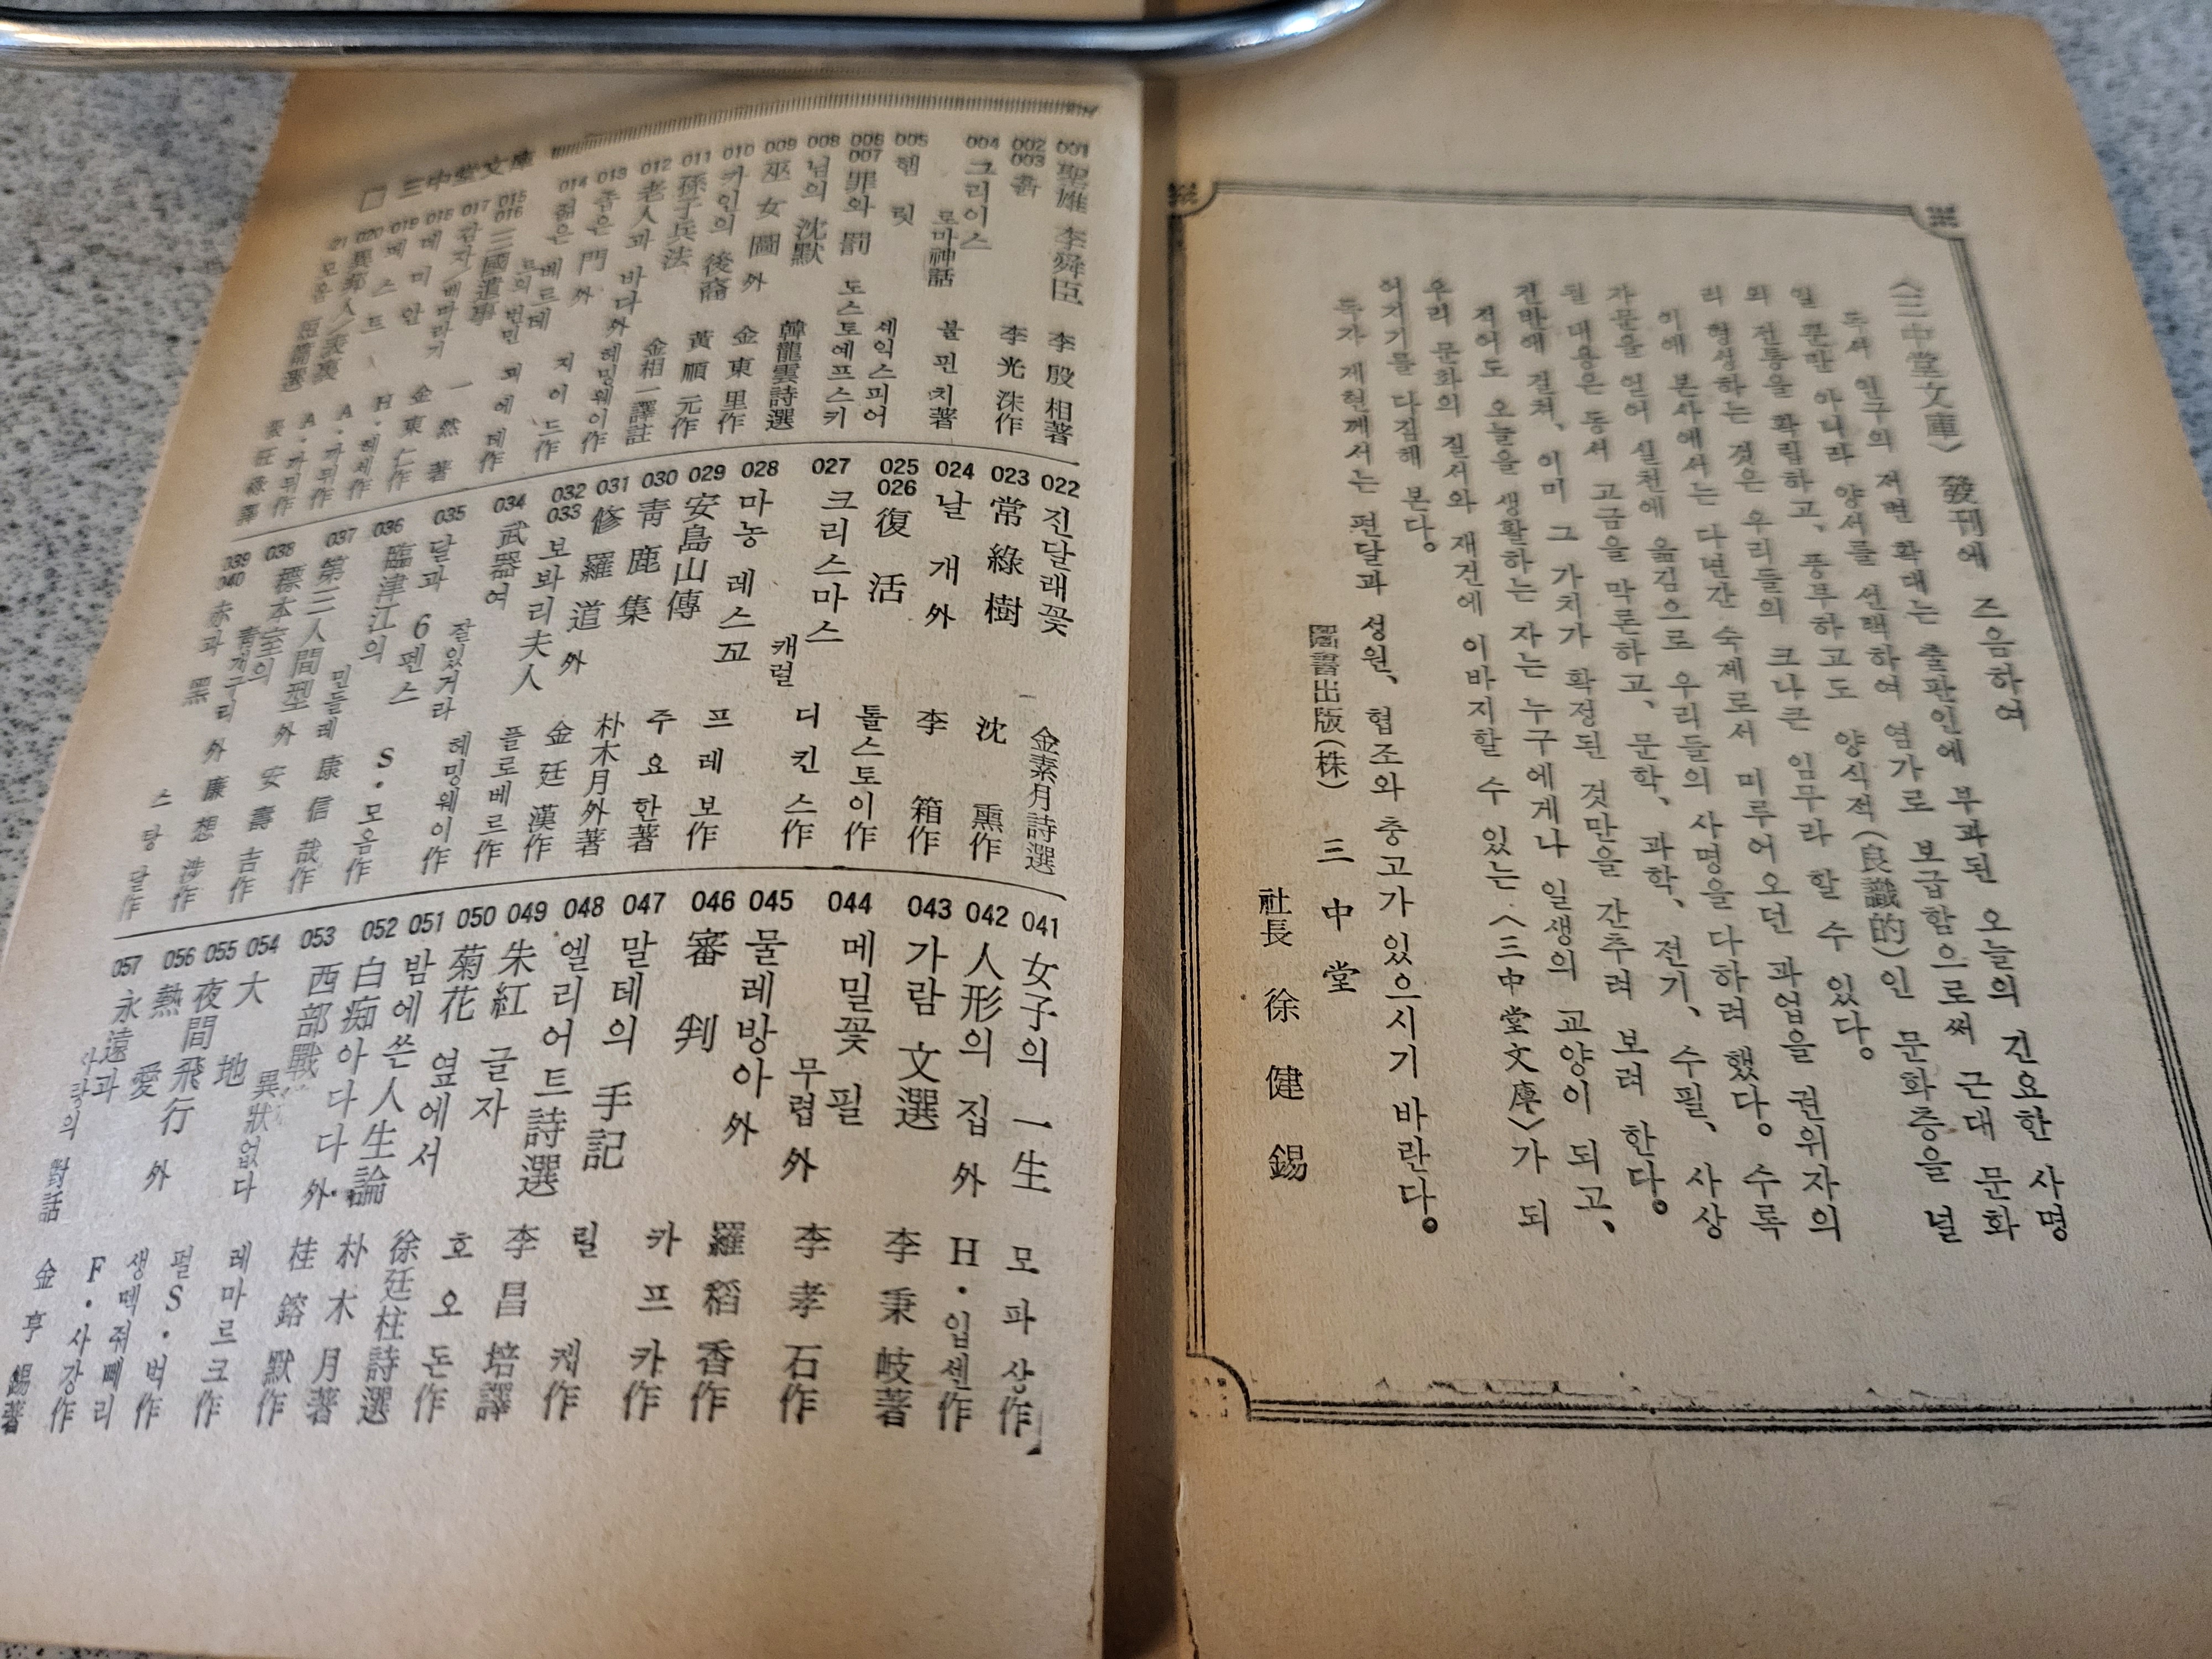 〈三中堂文庫〉 發刊에 즈음하여
독서 인구의 저변 확대는 출판인에 부과된 오늘의 긴요한 사명
일 뿐만 아니라 양서를 선택하여 염가로 보급함으로써 근대 문화
와 전통을 확립하고, 풍부하고도 양식적(良識的)인 문화층을 널
리 형성하는 것은 우리들의 크나큰 임무라 할 수 있다.
이에 본사에서는 다년간 숙제로서 미루어오던 과업을 권위자의
자문을 얻어 실천에 옮김으로 우리들의 사명을 다하려 했다. 수록
된 내용은 동서 고금을 막론하고, 문학, 과학, 전기, 수필, 사상
전반에 걸쳐, 이미 그 가치가 확정된 것만을 간추려 보려 한다.
적어도 오늘을 생활하는 자는 누구에게나 일생의 교양이 되고,
우리 문화의 질서와 재건에 이바지할 수 있는 〈三中堂文庫〉가 되
여기기를 다짐해 본다.
독자 제현께서는 편달과 성원, 협조와 충고가 있으시기 바란다.
圖書出版(株) 三中堂
社長 徐健錫
□ 三中堂文庫
001 聖雄 李舜臣 李殷相著
002 003 흙 李光洙作
004 그리이스 로마神話 불핀치著
005 햄릿 셰익스피어
006 007 罪와 罰 도스토예프스키
008 님의 沈默 韓龍雲詩選
009 巫女圖 外 金東里作
010 카인의 後裔 黃順元作
011 孫子兵法 金相一譯註
012 老人과 바다 外 헤밍웨이作
013 좁은 門 外 지이드作
014 젊은 베르테르의 번민 괴에테作
015 016 三國遺事 一然著
017 감자/배따라기 金東仁作
018 데미안 H·헤세作
019 페스트 A·까뮈作
020 異邦人/表裏 A·까뮈作
21 모옴 短篇選
022 진달래꽃 金素月詩選
023 常綠樹 沈熏作
024 날개 外 李箱作
025 026 復活 톨스토이作
027 크리스마스 캐럴 디킨스作
028 마농 레스꼬 프레보作
029 安島山傳 주요한著
030 青鹿集 朴木月外著
031 修羅道 外 金廷漢作
032 033 보봐리夫人 플로베르作
034 武器여 잘있거라 헤밍웨이作
035 달과 6펜스 S·모옴作
036 臨津江의 민들레 康信哉作
037 第三人間型 外 安壽吉作
038 標本室의 靑개구리 外 廉想涉作
039 040 赤과 黑 스탕달作
041 女子의 一生 모파상作
042 人形의 집 外 H·입센作
043 가람文選 李秉岐著
044 메밀꽃 필 무렵 外 李孝石作
045 물레방아 外 羅稻香作
046 審判 카프카作
047 말테의 手記 릴케作
048 엘리어트詩選 李昌培譯
049 朱紅 글자 호오돈作
050 菊花 옆에서 徐廷柱詩選
051 밤에 쓴 人生論 朴木月著
052 白痴 아다다 外 桂鎔默作
053 西部戰線 異狀없다 레마르크作
054 大地 펄S·벅作
055 夜間飛行 생떽쥐뻬리
056 熱愛 外 F·사강作
057 永遠과 사랑의 對話 金亨錫著